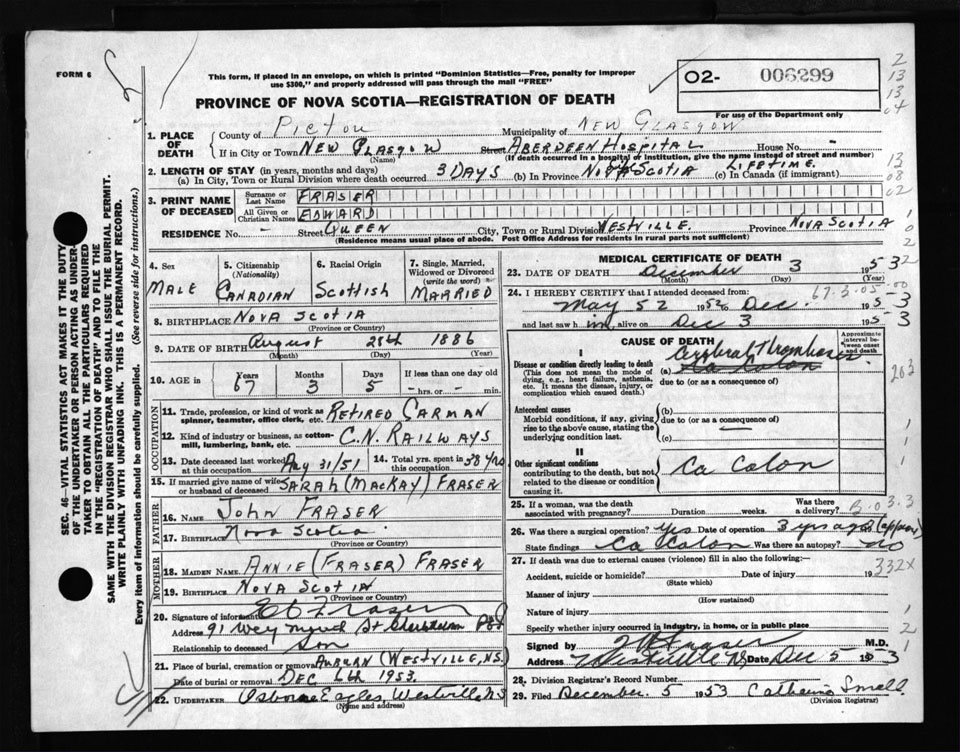 FORM 6
This form, if placed in an envelope, on which is printed "Dominion Statistics—Free, penalty for improper
use $300," and properly addressed will pass through the mail "FREE"
PROVINCE OF NOVA SCOTIA—REGISTRATION OF DEATH
O2- 006299
For use of the Department only
2
13
13
04
13
08
02
1. PLACE OF DEATH
County of Pictou Municipality of NEW GLASGOW
If in City or Town NEW GLASGOW Street ABERDEEN HOSPITAL House No. -
(Name) (If death occurred in a hospital or institution, give the name instead of street and number)
2. LENGTH OF STAY (in years, months and days)
(a) In City, Town or Rural Division where death occurred 3 DAYS (b) In Province NOVA SCOTIA LIFETIME. (c) In Canada (if immigrant)
3. PRINT NAME OF DECEASED
Surname or Last Name FRASER
All Given or Christian Names EDWARD
RESIDENCE No. - Street QUEEN City, Town or Rural Division WESTVILLE. Province NOVA SCOTIA
(Residence means usual place of abode. Post Office Address for residents in rural parts not sufficient)
SEC. 46—VITAL STATISTICS ACT MAKES IT THE DUTY
OF THE UNDERTAKER OR PERSON ACTING AS UNDER-
TAKER TO OBTAIN ALL THE PARTICULARS REQUIRED
IN THE "REGISTRATION OF DEATH" AND TO FILE THE
SAME WITH THE DIVISION REGISTRAR WHO SHALL ISSUE THE BURIAL PERMIT.
WRITE PLAINLY WITH UNFADING INK. THIS IS A PERMANENT RECORD.
Every item of information should be carefully supplied. (See reverse side for instructions.)
4. Sex MALE
5. Citizenship (Nationality) CANADIAN
6. Racial Origin SCOTTISH
7. Single, Married, Widowed or Divorced (write the word) MARRIED
8. BIRTHPLACE NOVA SCOTIA
(Province or Country)
9. DATE OF BIRTH August 28th 1886
(Month) (Day) (Year)
10. AGE in Years 67 Months 3 Days 5 If less than one day old
- hrs. or - min.
OCCUPATION
11. Trade, profession, or kind of work as spinner, teamster, office clerk, etc. RETIRED CARMAN
12. Kind of industry or business, as cotton-mill, lumbering, bank, etc. C.N. RAILWAYS
13. Date deceased last worked at this occupation Aug 31/51 14. Total yrs. spent in this occupation 38 yrs
15. If married give name of wife or husband of deceased SARAH (MACKAY) FRASER
FATHER
16. NAME JOHN FRASER
17. BIRTHPLACE Nova Scotia
(Province or Country)
MOTHER
18. MAIDEN NAME ANNIE (FRASER) FRASER
19. BIRTHPLACE NOVA SCOTIA
(Province or Country)
20. Signature of informant Fraser
Address 91 St
Relationship to deceased Son
21. Place of burial, cremation or removal AUBURN (WESTVILLE, N.S.)
Date of burial or removal DEC 6th 1953.
22. UNDERTAKER Osborne Eagles, Westville NS
(Name and address)
MEDICAL CERTIFICATE OF DEATH
23. DATE OF DEATH December 3 1953
(Month) (Day) (Year)
24. I HEREBY CERTIFY that I attended deceased from: 67-3-05-00
May 52 1952 to Dec. 1953
and last saw him alive on Dec 3 1953
CAUSE OF DEATH
Approximate interval between onset and death
I
Disease or condition directly leading to death
(This does not mean the mode of dying, e.g., heart failure, asthenia, etc. It means the disease, injury, or complication which caused death.)
(a) Cerebral Thrombosis
Ca Colon
due to (or as a consequence of)
Antecedent causes
Morbid conditions, if any, giving rise to the above cause, stating the underlying condition last.
(b)
due to (or as a consequence of)
(c)
II
Other significant conditions
contributing to the death, but not related to the disease or condition causing it.
Ca Colon
25. If a woman, was the death associated with pregnancy? Duration weeks. Was there a delivery?
26. Was there a surgical operation? Yes Date of operation 3 yrs ago
State findings Ca Colon Was there an autopsy? no
27. If death was due to external causes (violence) fill in also the following:
332X
Accident, suicide or homicide? Date of injury 19
(State which)
Manner of injury
(How sustained)
Nature of injury
Specify whether injury occurred in industry, in home, or in public place
Signed by Fraser M.D.
Address Westville NS Date Dec 5 1953
28. Division Registrar's Record Number
29. Filed December. 5 1953 Catharine Small
(Division Registrar)